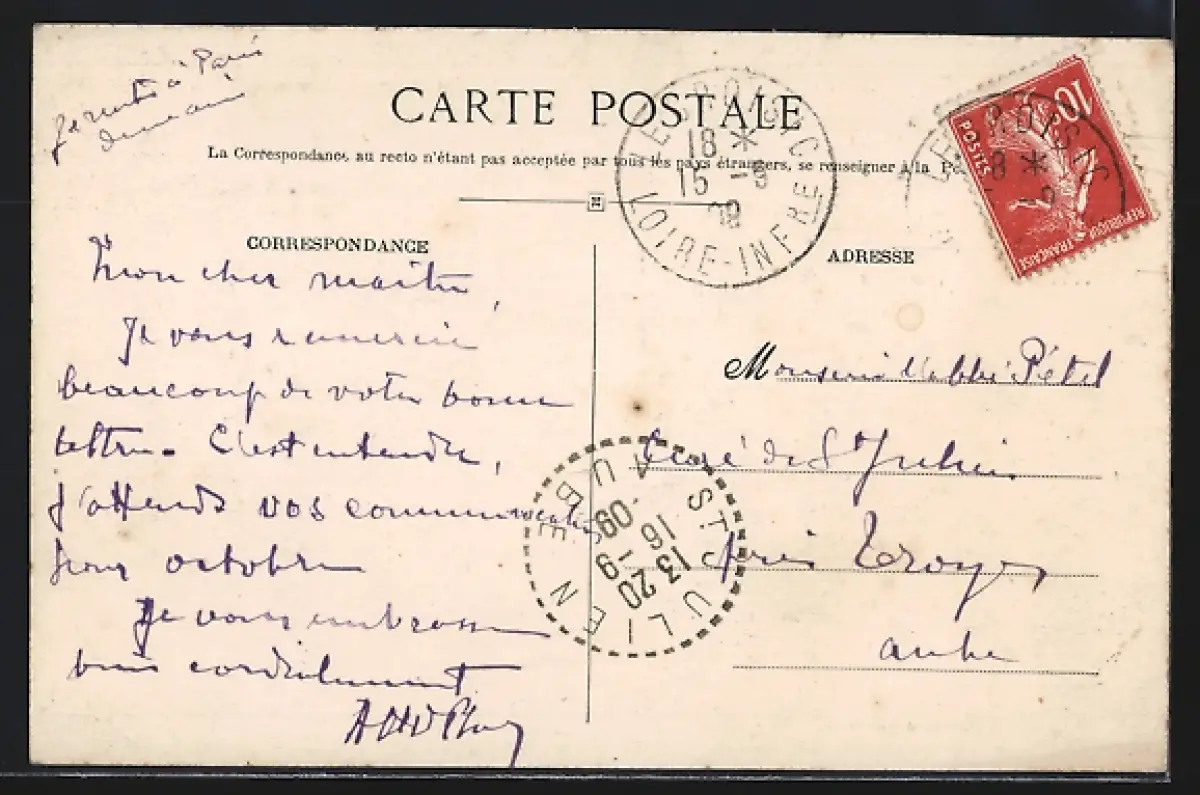 Je rentre à Paris
demain
CARTE POSTALE
La Correspondance au recto n'étant pas acceptée par tous les pays étrangers, se renseigner à la
CORRESPONDANCE
Mon cher maître,
Je vous remercie
beaucoup de votre bonne
lettre. C'est entendu,
j'attends vos communications
pour octobre
Je vous embrasse
bien cordialement
ADRESSE
Monsieur l'abbé Pétel
Curé de St Julien
près Troyes
Aube
LE
18 *
15 - 9
09
LOIRE-INFRE
10c
POSTES
REPUBLIQUE FRANÇAISE
18 *
ST JULIEN
13 20
16 - 9
09
AUBE